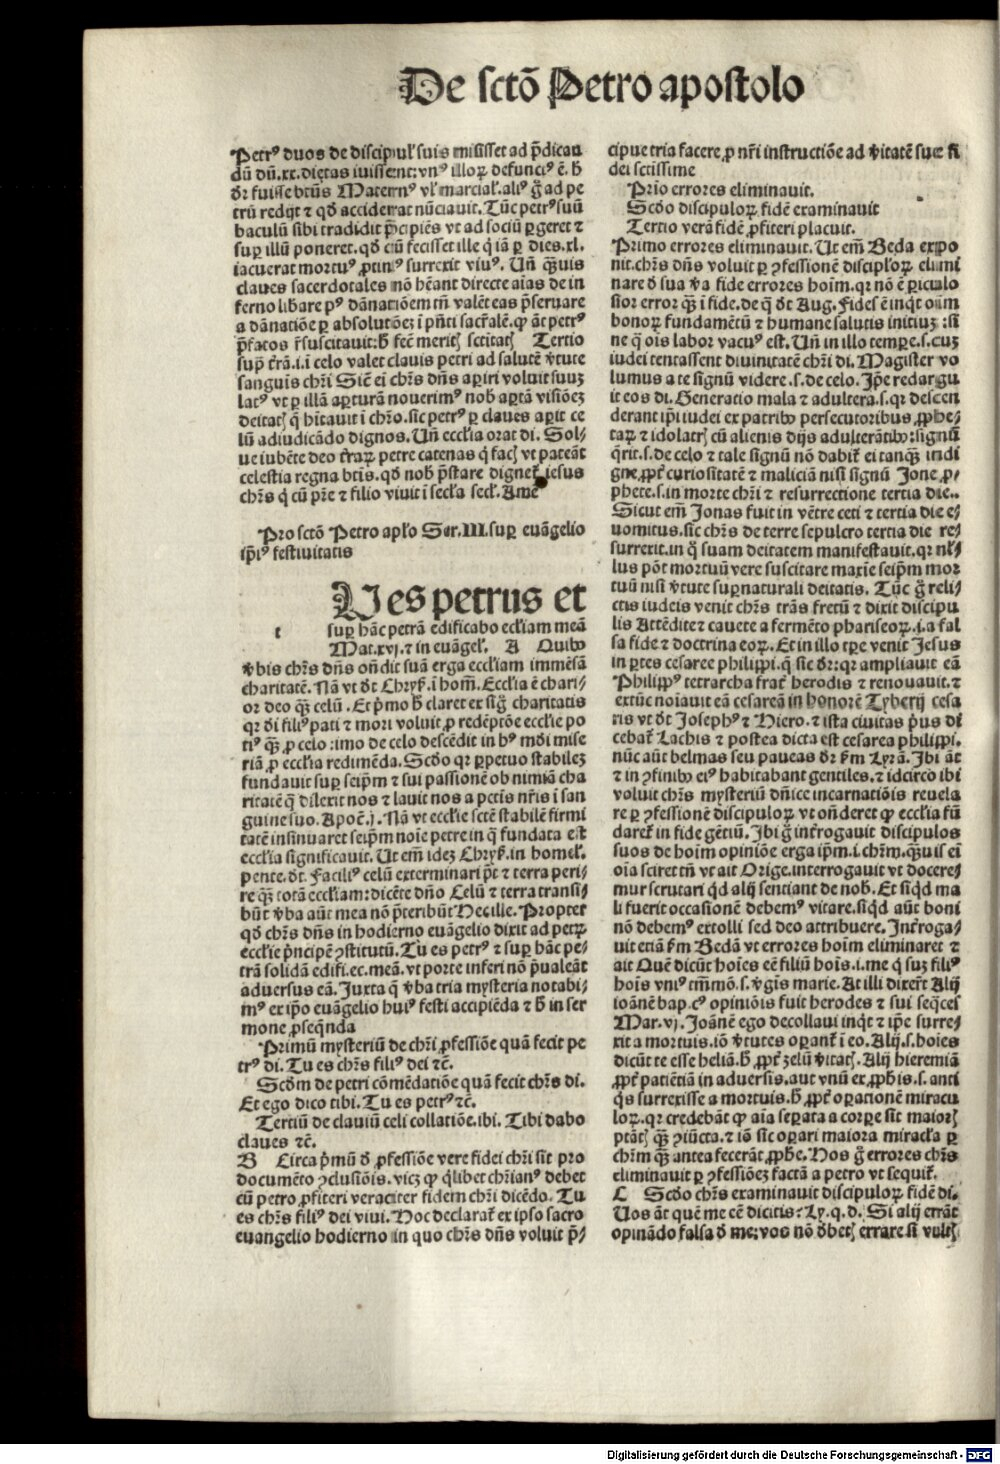 De sctō Petro apostolo
Petrꝰ duos de discipul' suis misisset ad p̄dican
dū dū.xx. dietas iuissent: vnꝰ illoꝝ defunctꝰ ē. h̄
dr̄ fuisse btūs Maternꝰ vl' marcial'. aliꝰ g̊ ad pe
trū redijt ⁊ qd̄ acciderat nūciauit. Tūc petrꝰ suū
baculū sibi tradidit p̄cipiēs vt ad sociū ꝑgeret ⁊
suꝑ illū poneret. qd̄ cū fecisset ille q̄ iā ꝑ dies.xl.
iacuerat mortuꝰ ꝓtinꝰ surrexit viuꝰ. Uñ q̄uis
claues sacerdotales nō hēant directe aīas de in
ferno libare pꝰ dānatiōem tñ valēt eas p̄seruare
a dānatiōe ꝑ absolutōeꝫ ī pn̄ti sacr̄alē. ꝙ āt petrꝰ
p̄fatos r̄suscitauit: h̄ fec̄ meritꝭ sctitatꝭ Tertio
suꝑ tr̄ā.i. ī celo valet clauis petri ad salutē v̄tute
sanguīs chr̄i Sic̄ eī chr̄s dn̄s aꝑiri voluit suuꝫ
latꝰ vt ꝑ illā aꝑturā nouerimꝰ nob aꝑtā visiōeꝫ
deitatꝭ q̄ hītauit ī chr̄o. sic petrꝰ ꝑ claues aꝑit ce
lū adiudicādo dignos. Uñ eccl'ia orat di. Sol⸗
ue iubēte deo tr̄aꝝ petre catenas q̄ facꝭ vt pateāt
celestia regna btīs. qd̄ nob p̄stare dignet̄ iesus
chr̄s q̄ cū pr̄e ⁊ filio viuit ī secl'a secl'. Amē
Pro sctō Petro apl'o Ser.III. suꝑ euāgelio
ip̄iꝰ festiuitatis
t
U es petrus et
suꝑ hāc petrā edificabo eccl'iam meā
Mat.xvj. ⁊ in euāgel'. A Quibꝰ
v̄bis chr̄s dn̄s on̄dit suā erga eccl'iam immēsā
charitatē. Nā vt dt̄ Chryſ. ī hom̄. Eccl'ia ē chari⸗
or deo q̄ꝫ celū. Et p̄mo h̄ claret ex sig̊ charitatis
qr di filiꝰ pati ⁊ mori voluit ꝓ redēptōe eccl'ie po
tiꝰ q̄ꝫ ꝓ celo: imo de celo descēdit in hꝰ mōi mise
riā ꝓ eccl'ia redimēda. Scdo qr ꝑpetuo stabileꝫ
fundauit suꝑ seip̄m ⁊ sui passionē ob nimiā cha
ritatē q̄ dilexit nos ⁊ lauit nos a pctīs nr̄is ī san
guine suo. Apoc̄.j. Nā vt eccl'ie sctē stabilē firmi
tatē insinuaret seip̄m noīe petre in q̄ fundata est
eccl'ia significauit. Ut em̄ ideꝫ Chryſ. in homel'.
pente. dt̄. Faciliꝰ celū exterminari pt̄ ⁊ terra peri⸗
re q̄ꝫ totā eccl'iam: dicēte dn̄o Celū ⁊ terra transi⸗
būt v̄ba aūt mea nō p̄teribūt Hec ille. Propter
qd̄ chr̄s dn̄s in hodierno euāgelio dixit ad petꝝ
eccl'ie p̄ncipē ꝯstitutū. Tu es petrꝰ ⁊ suꝑ hāc pe⸗
trā solidā edifi. ec. meā. vt porte inferi nō p̄ualeāt
aduersus eā. Juxta q̄ v̄ba tria mysteria notabi⸗
mꝰ ex ip̄o euāgelio huiꝰ festi accipiēda ⁊ h̄ in ser
mone ꝓseq̄nda
Primū mysteriū de chr̄i ꝓfessiōe quā fecit pe
trꝰ di. Tu es chr̄s filiꝰ dei ⁊c̄.
Scdm de petri cōmēdatiōe quā fecit chr̄s di.
Et ego dico tibi. Tu es petrꝰ ⁊c̄.
Tertiū de clauiū celi collatiōe. ibi. Tibi dabo
claues ⁊c̄.
B Circa p̄mū d̄ ꝓfessiōe vere fidei chr̄i sit pro
documēto ꝯclusiōis. vicꝫ ꝙ q̄libet chr̄ianꝰ debet
cū petro ꝓfiteri veraciter fidem chr̄i dicēdo. Tu
es chr̄s filiꝰ dei viui. Hoc declarat̄ ex ipso sacro
euangelio hodierno in quo chr̄s dn̄s voluit p̄⸗
cipue tria facere ꝓ nr̄i instructiōe ad v̄itatē sue fi
dei sctissime
Prīo errores eliminauit.
Scdo discipuloꝝ fidē examinauit
Tertio verā fidē ꝓfiteri placuit.
Primo errores eliminauit. Ut em̄ Beda expo
nit. chr̄s dn̄s voluit ꝑ ꝯfessionē discipl'oꝝ elimi
nare d̄ sua v̄a fide errores hoīm. qr nō ē ꝑiculo
sior error q̄ꝫ ī fide. de q̄ dt̄ Aug. Fides ē inq̄t oīm
bonoꝝ fundamētū ⁊ humane salutis initiuꝫ: si⸗
ne q̄ oīs labor vacuꝰ est. Uñ in illo tempe.s. cuꝫ
iudei tentassent diuinitatē chr̄i di. Magister vo
lumus a te signū videre.s. de celo. Ip̄e redargu
it eos di. Generatio mala ⁊ adultera.s. qr descen
derant ip̄i iudei ex patribꝰ persecutoribus ꝓphe⸗
taꝝ ⁊ idolatrꝭ cū alienis dijs adulterātibꝰ: signū
q̄rit.s. de celo ⁊ tale signū nō dabit̄ ei tanq̄ꝫ indi
gne ꝓpt̄ curiositatē ⁊ maliciā nisi signū Jone ꝓ⸗
phete.s. in morte chr̄i ⁊ resurrectione tertia die..
Sicut em̄ Jonas fuit in vētre ceti ⁊ tertia die e⸗
uomitus. sic chr̄s de terre sepulcro tertia die re⸗
surrexit. in q̄ suam deitatem manifestauit. qr nl'⸗
lus pōt mortuū vere suscitare maxīe seip̄m mor
tuū nisi v̄tute suꝑnaturali deitatis. Tūc g̊ reli⸗
ctis iudeis venit chr̄s trās fretū ⁊ dixit discipu
lis Attēdite ⁊ cauete a fermēto phariseoꝝ.i. a fal
sa fide ⁊ doctrina eoꝝ. Et in illo tꝑe venit Jesus
in ꝑtes cesaree philippi. q̄ sic dr̄: qr ampliauit eā
Philippꝰ tetrarcha frat̄ herodis ⁊ renouauit. ⁊
extūc noīauit eā cesareā in honorē Tyberij cesa
ris vt dt̄ Josephꝰ ⁊ Hiero. ⁊ ista ciuitas p̄us di
cebat̄ Lachis ⁊ postea dicta est cesarea philippi.
nūc aūt belmas seu paueas dr̄ ẜm Lyrā. Ibi āt
⁊ in ꝯfinibꝰ eiꝰ habitabant gentiles. ⁊ idcirco ibi
voluit chr̄s mysteriū dn̄ice incarnatiōis reuela
re ꝑ ꝯfessionē discipuloꝝ vt on̄deret ꝙ eccl'ia fū
daret̄ in fide gētiū. Ibi g̊ int̄rogauit discipulos
suos de hoīm opiniōe erga ip̄m.i. chr̄m. q̄uis eī
oīa sciret tn̄ vt ait Orige. interrogauit vt docere⸗
mur scrutari q̄d alij sentiant de nob. Et siq̄d ma
li fuerit occasionē debemꝰ vitare. siq̄d aūt boni
nō debemꝰ extolli sed deo attribuere. Int̄roga⸗
uit etiā ẜm Bedā vt errores hoīm eliminaret ⁊
ait Quē dicūt hoīes eē filiū hoīs.i. me q̄ suꝫ filiꝰ
hoīs vniꝰ tm̄mō.s. v̄gīs marie. At illi dixert̄ Alij
ioānē bap. cꝰ opiniōis fuit herodes ⁊ sui seq̄ces
Mar.vj. Joānē ego decollaui inq̄t ⁊ ip̄e surre⸗
xit a mortuis. iō v̄tutes oꝑant̄ ī eo. Alij.s. hoīes
dicūt te esse heliā. h̄ ꝓpt̄ zelū v̄itatꝭ. Alij hieremiā
ꝓpt̄ patiētiā in aduersis. aut vnū ex ꝓphīs.s. anti
q̄s surrexisse a mortuis. h̄ ꝓpt̄ oꝑationē miracu
loꝝ. qr credebāt ꝙ aīa seꝑata a corꝑe sit maiorꝭ
ptātꝭ q̄ꝫ ꝯiūcta. ⁊ iō sic oꝑari maiora miracl'a ꝑ
chr̄m q̄ꝫ antea fecerāt ꝓphe. Hos g̊ errores chr̄s
eliminauit ꝑ ꝯfessiōeꝫ factā a petro vt sequit̄.
C Scdo chr̄s examinauit discipuloꝝ fidē di.
Uos āt quē me eē dicitis? Ly. q. d. Si alij errāt
opinādo falsa d̄ me: vos nō d̄betꝭ errare si vultꝭ
Digitalisierung gefördert durch die Deutsche Forschungsgemeinschaft - DFG